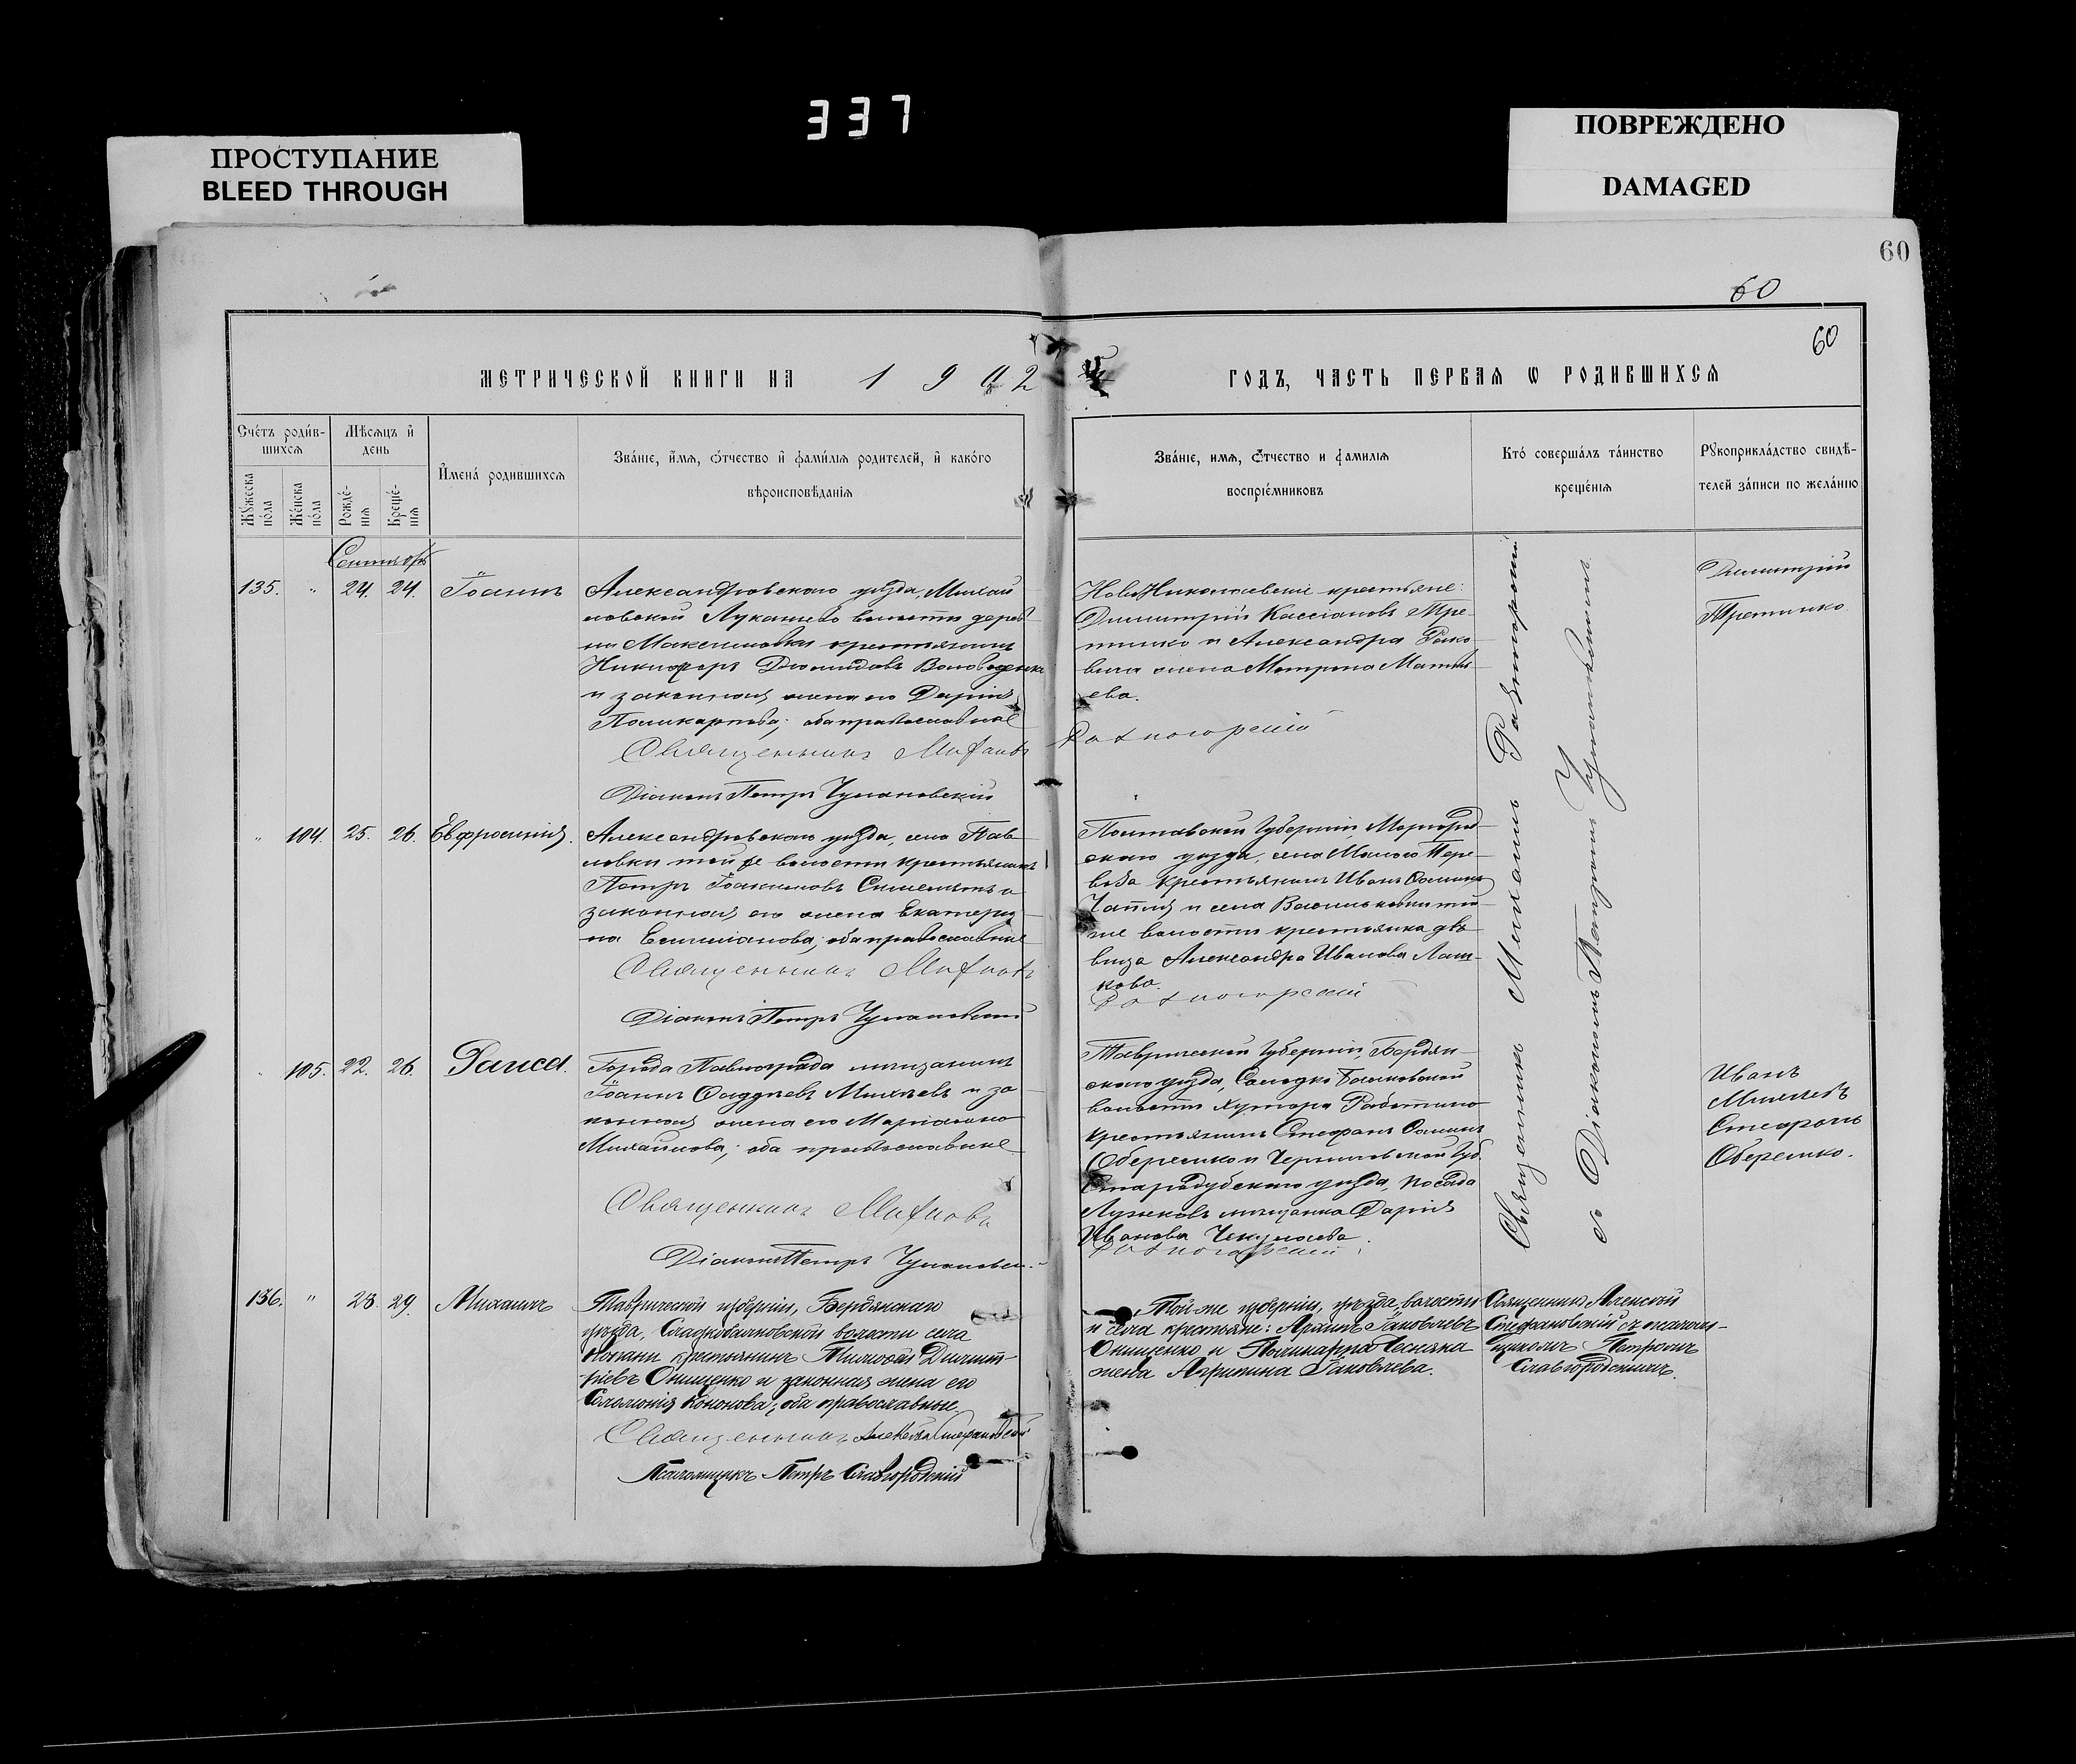 337
ПРОСТУПАНИЕ
BLEED THROUGH
ПОВРЕЖДЕНО
DAMAGED
60
60
60
МЕТРИЧЕСКОЙ КНИГИ НА 1902 ГОДЪ, ЧАСТЬ ПЕРВАЯ Ѡ РОДИВШИХСЯ
Счетъ родив-
шихся
Мужеска пола
Женска пола
Мѣсяцъ и день
Рожде-
нія
Креще-
нія
Имена родившихся
Званіе, имя, отчество и фамилія родителей, и какого
вѣроисповѣданія
Званіе, имя, отчество и фамилія
воспріемниковъ
Кто совершалъ таинство
крещенія
Рукоприкладство свидѣ-
телей записи по желанію
Сентябрь
135. " 24. 24. Іоаннъ
Александровскаго уѣзда, Михай
ловской Лукашево волости дерев
ни Максимовки крестьянинъ
Никифоръ Діомидовъ
и законная жена его Дарія
Поликарпова; оба православные
Священникъ
Діаконъ Петръ Чумановскій
Ново Николаевскіе крестьяне:
Димитрій Кассіановъ Тре-
тинко и Александра
жена Матрона Матѳѣ
ева.
Димитрій
Третинко
" 104. 25. 26. Евфросинія.
Александровскаго уѣзда, села Пав-
ловки той же волости крестьянинъ
Петръ Іоакимовъ
законная его жена Екатери-
на Емиліанова; оба православные
Священникъ
Діаконъ Петръ Чумановскій
Полтавской Губерніи, Миргород-
скаго уѣзда, села Малого Пере-
воза крестьянинъ Иванъ Ѳоминъ
Чапля и села Васильковки той
же волости крестьянка дѣ-
вица Александра Иванова Лаш-
кова.
" 105. 22. 26. Раиса.
Города Павлограда мѣщанинъ
Іоаннъ Ѳаддеевъ Михѣевъ и за-
конная жена его Маріанна
Михайлова; оба православные
Священникъ
Діаконъ Петръ Чумановскій
Таврической Губерніи, Бердян-
скаго уѣзда, Сладко Балковской
волости хутора Работино
крестьянинъ Стефанъ Ѳоминъ
Оберемко и Черниговской Губ.
Стародубскаго уѣзда, посада
Лужковъ мѣщанка Дарія
Иванова
Иванъ
Михѣевъ
Стефанъ
Оберемко.
Священникъ Михаилъ
съ Діакономъ Петромъ Чумановскимъ
136. " 28. 29. Михаилъ
Таврической губерніи, Бердянскаго
уѣзда, Сладкобалковской волости села
крестьянинъ Тимофей Димит-
ріевъ Онищенко и законная жена его
Соломонія Кононова; оба православные.
Священникъ Алексій Стефановскій
Псаломщикъ Петръ Славгородскій
Той-же губерніи, уѣзда, волости
и села крестьяне: Архипъ Іаковлевъ
Онищенко и Поликарпа
жена Агрипина Іаковлева.
Священникъ Алексій
Стефановскій съ псалом-
щикомъ Петромъ
Славгородскимъ.